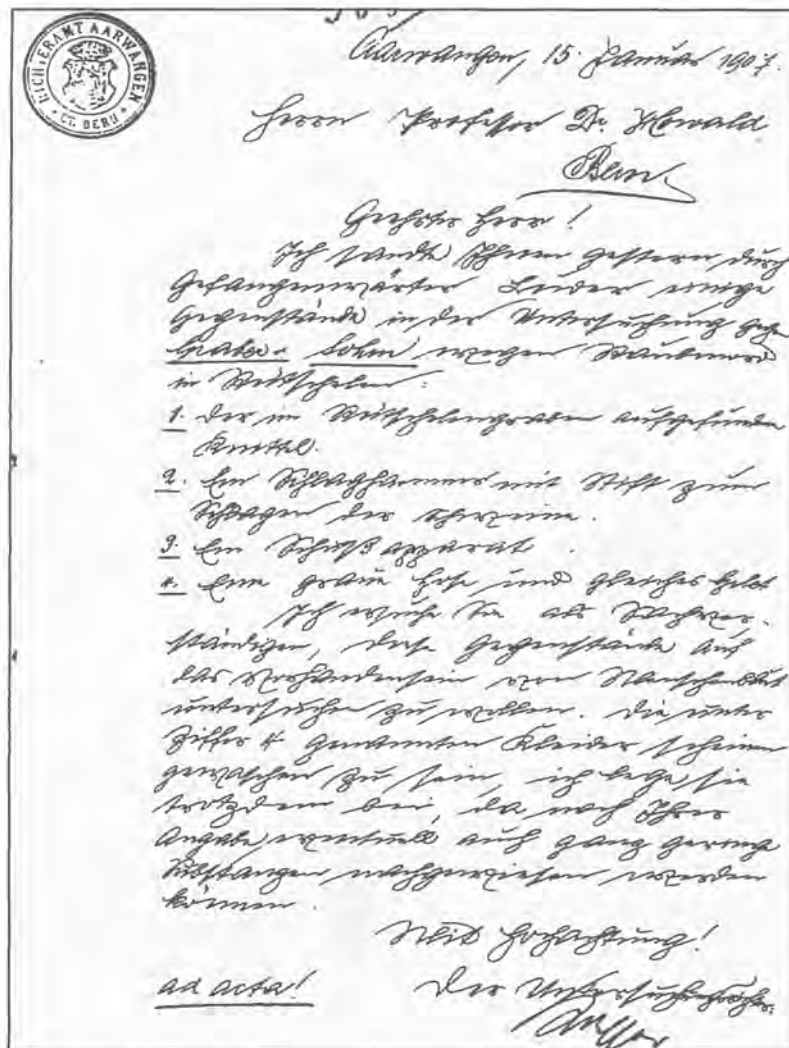 RICHTERAMT AARWANGEN
* CT. BERN *
Aarwangen, 15. Januar 1907.
Herrn Professor Dr. Howald
Bern
Geehrter Herr!
Ich sandte Ihnen gestern durch
Gefangenwärter Leider einige
Gegenstände in der Untersuchung gegen
wegen Raubmord
in Rütschelen:
1. Der im Rütschelengraben aufgefundene
Knüttel.
2. Ein Schlaghammer mit Stift zum
Schlagen der Schweine.
3. Ein Schußapparat
4. Eine graue Hose und gleiches Gilet
Ich ersuche Sie als Sachver-
ständigen, diese Gegenstände auf
das Vorhandensein von Menschenblut
untersuchen zu wollen. Die unter
Ziffer 4 genannten Kleider scheinen
gewaschen zu sein, ich lege sie
trotzdem bei, da nach Ihrer
Angabe eventuell auch ganz geringe
Substanzen nachgewiesen werden
können.
Mit Hochachtung!
ad acta!
Der Untersuchungsrichter: